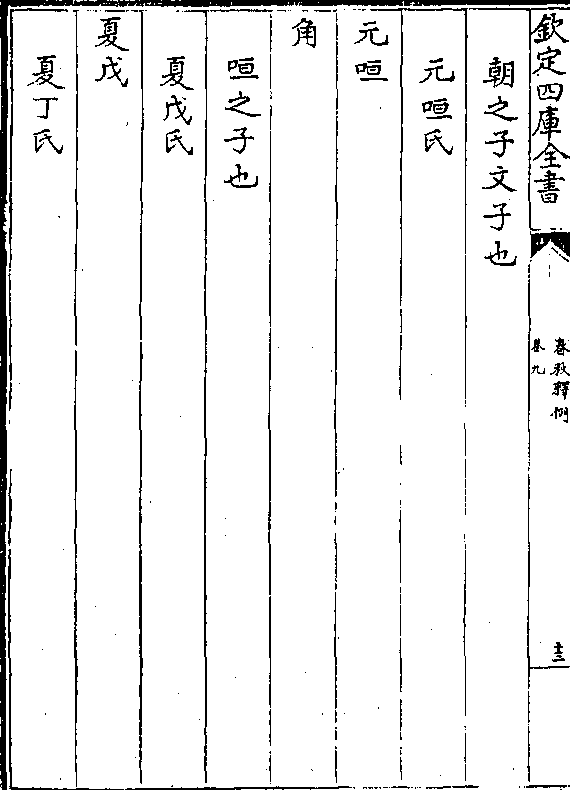 欽定四庫全書
春秋釋例
卷九
十三
朝之子文子也
元咺氏
元咺
角
咺之子也
夏戊氏
夏戊
夏丁氏